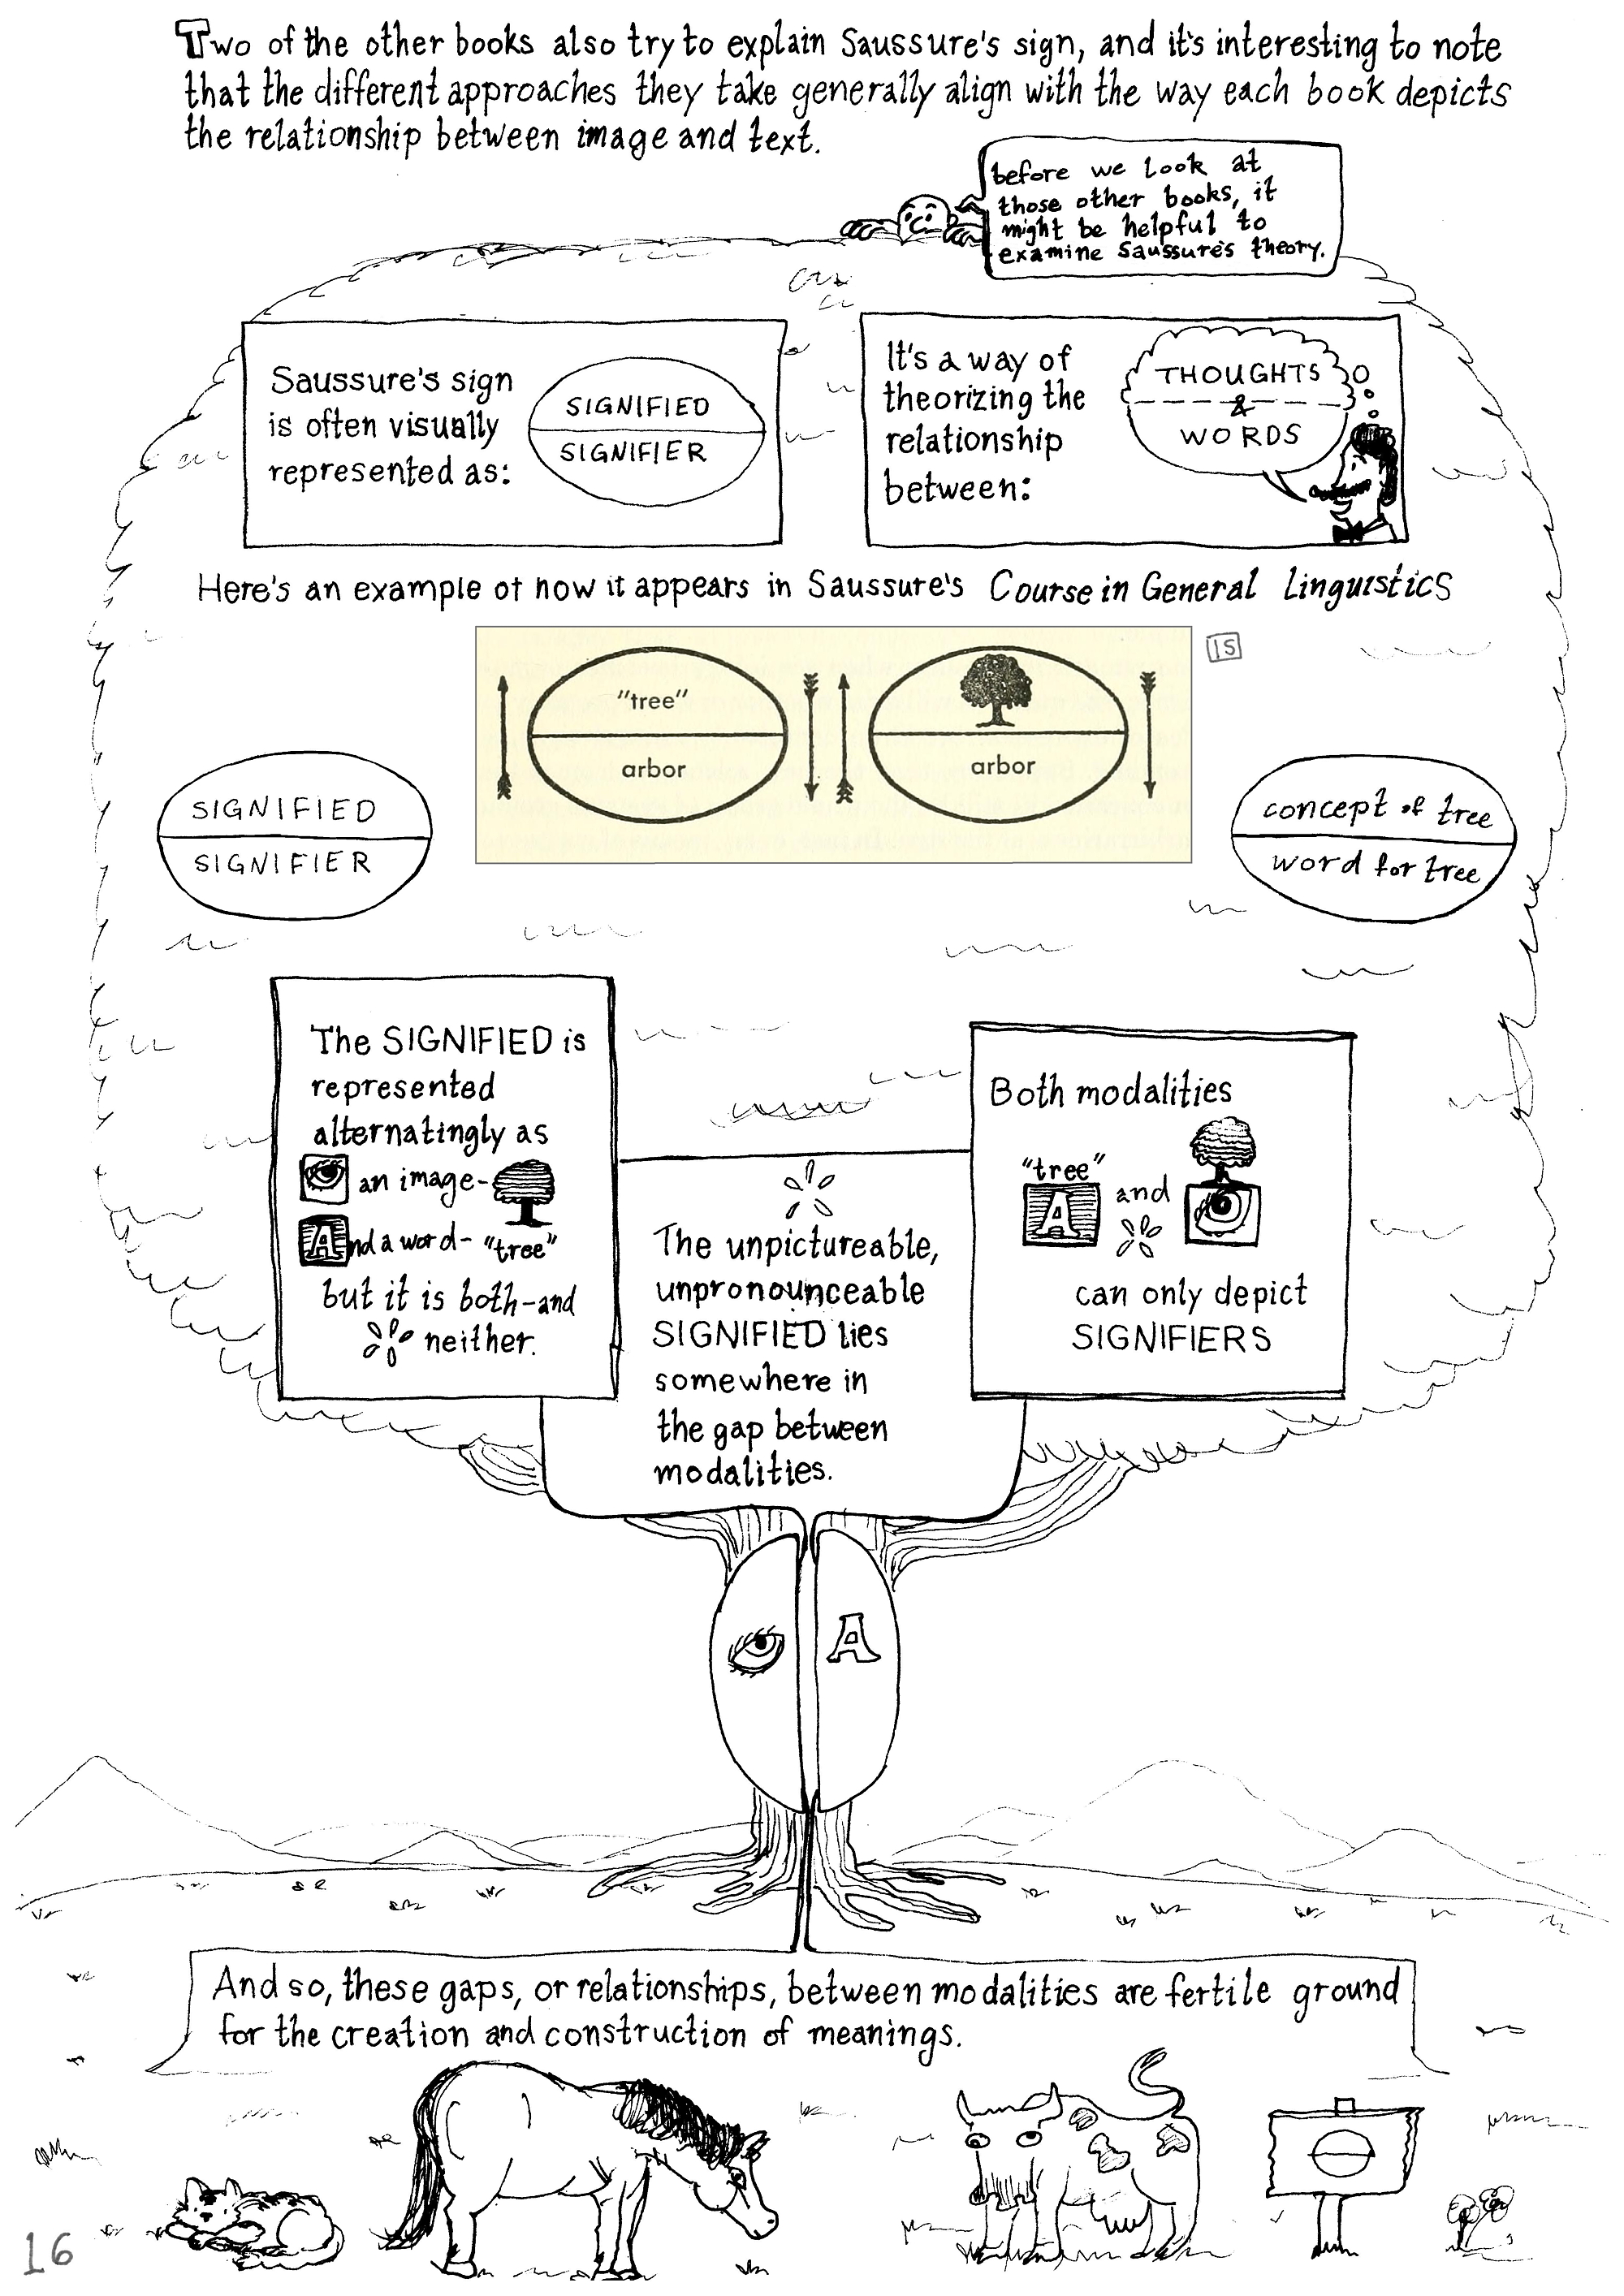 Two of the other books also try to explain Saussure's sign, and it's interesting to note
that the different approaches they take generally align with the way each book depicts
the relationship between image and text.
before we look at
those other books, it
might be helpful to
examine Saussure's theory.
Saussure's sign
is often visually
represented as:
SIGNIFIED
SIGNIFIER
It's a way of
theorizing the
relationship
between:
THOUGHTS
&
WORDS
Here's an example of how it appears in Saussure's Course in General Linguistics
15
"tree"
arbor
arbor
SIGNIFIED
SIGNIFIER
concept of tree
word for tree
The SIGNIFIED is
represented
alternatingly as
an image-
And a word- "tree"
but it is both-and
neither.
The unpictureable,
unpronounceable
SIGNIFIED lies
somewhere in
the gap between
modalities.
Both modalities
"tree"
A and
can only depict
SIGNIFIERS
A
And so, these gaps, or relationships, between modalities are fertile ground
for the creation and construction of meanings.
16